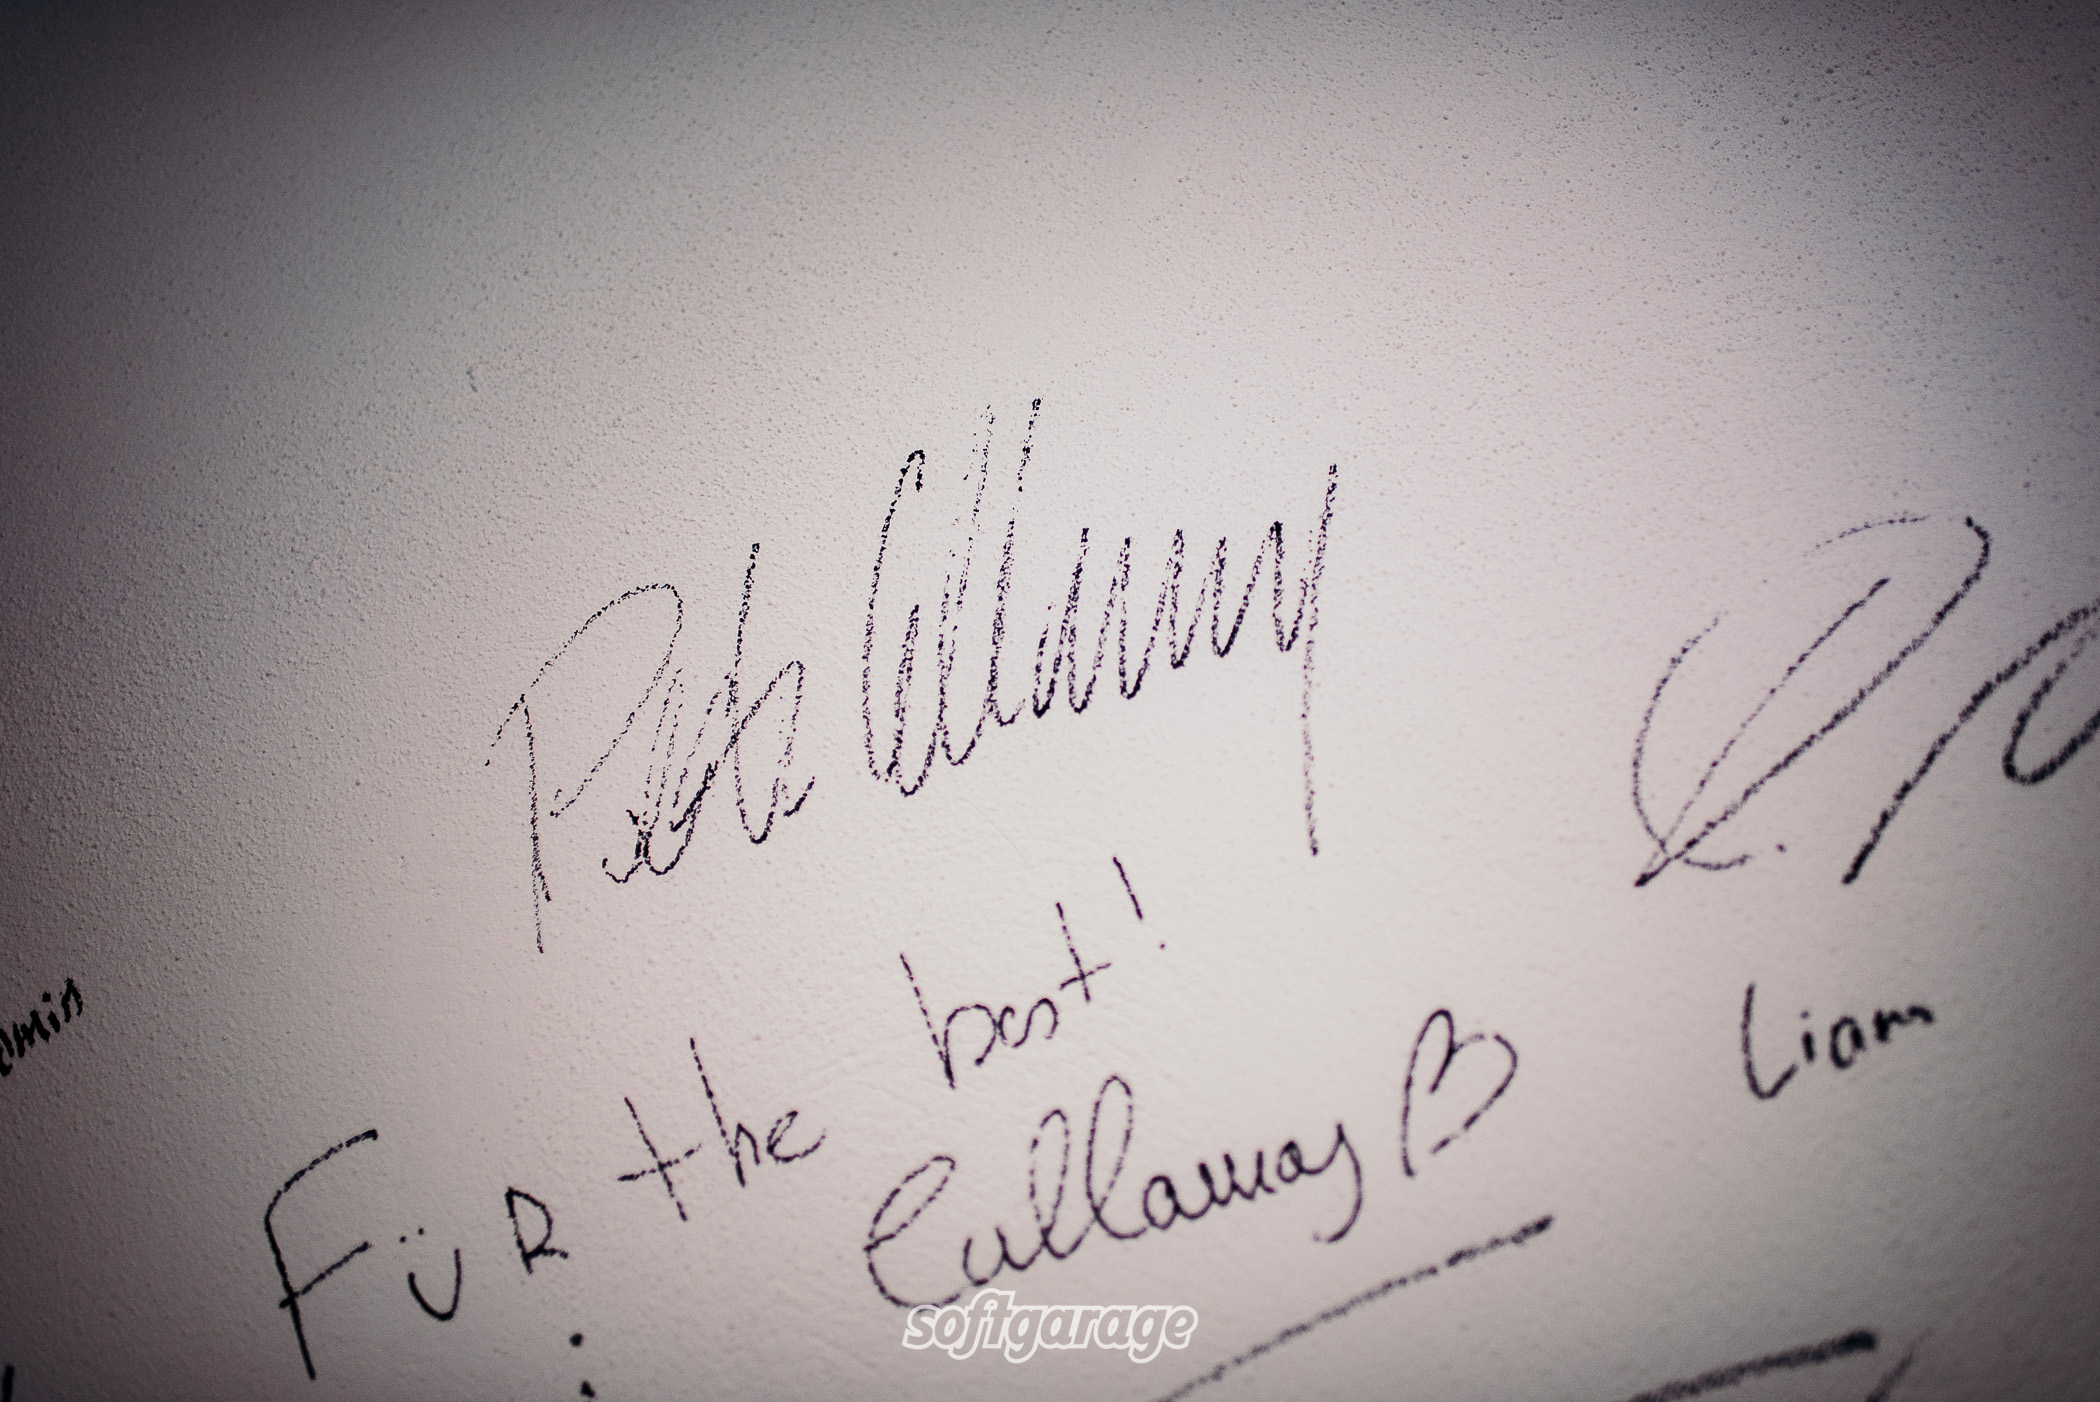 Pete Callaway
Für the best!
Callaway B
Liam
softgarage